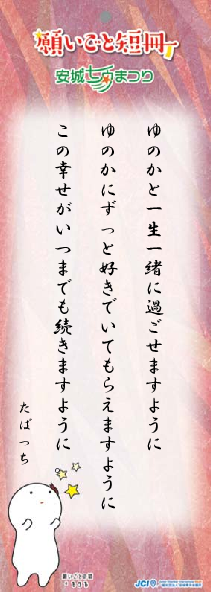 願いごと短冊
安城七夕まつり
ゆのかと一生一緒に過ごせますように
ゆのかにずっと好きでいてもらえますように
この幸せがいつまでも続きますように
たばっち
願いごと短冊
JCI